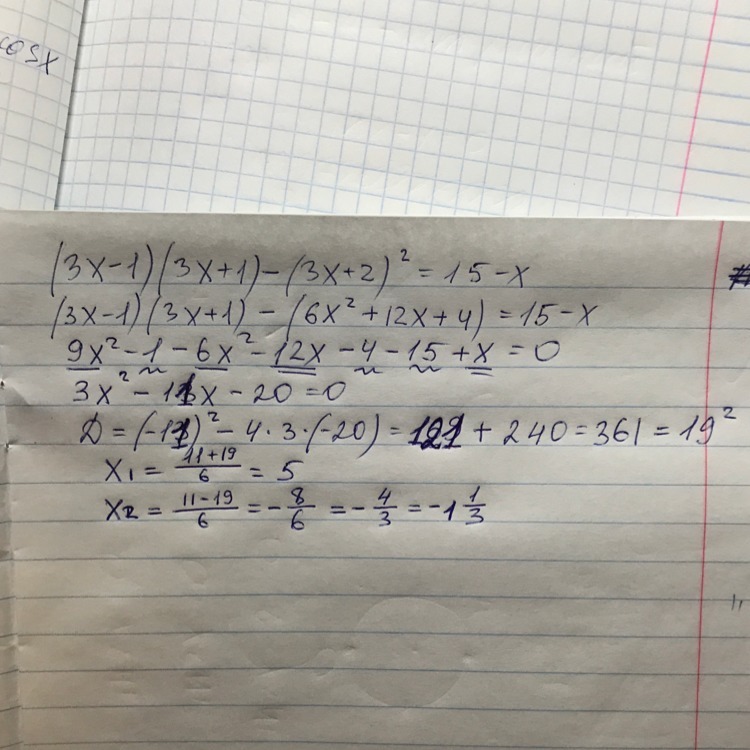 cosx
(3x-1)(3x+1)-(3x+2)² = 15-x
(3x-1)(3x+1) - (6x²+12x+4) = 15-x
9x²-1-6x²-12x-4-15+x=0
3x²-11x-20=0
D=(-11)²-4·3·(-20)=121+240=361=19²
x₁ = (11+19)/6 = 5
x₂ = (11-19)/6 = -8/6 = -4/3 = -1 1/3